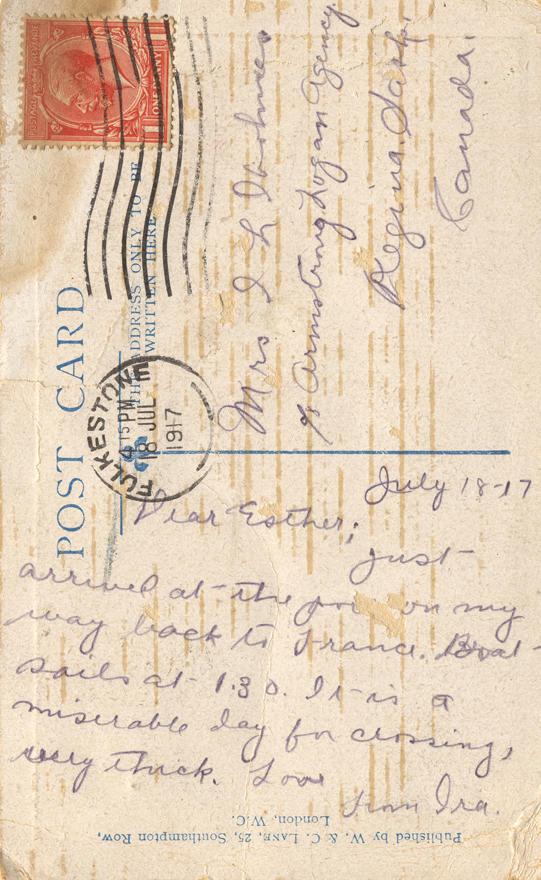 POST CARD
THE ADDRESS ONLY TO BE
WRITTEN HERE
ONE PENNY
FOLKESTONE
4 15 PM
18 JUL
1917
Mrs I L
Armstrong Logan Agency
Regina, Sask.
Canada.
July 18-17
Dear Esther;
Just
arrived at the on my
way back to France. Boat
sails at 1.30. It is a
miserable day for crossing,
very thick. Love
from Ira.
Published by W. & C. LANE, 25, Southampton Row,
London, W.C.